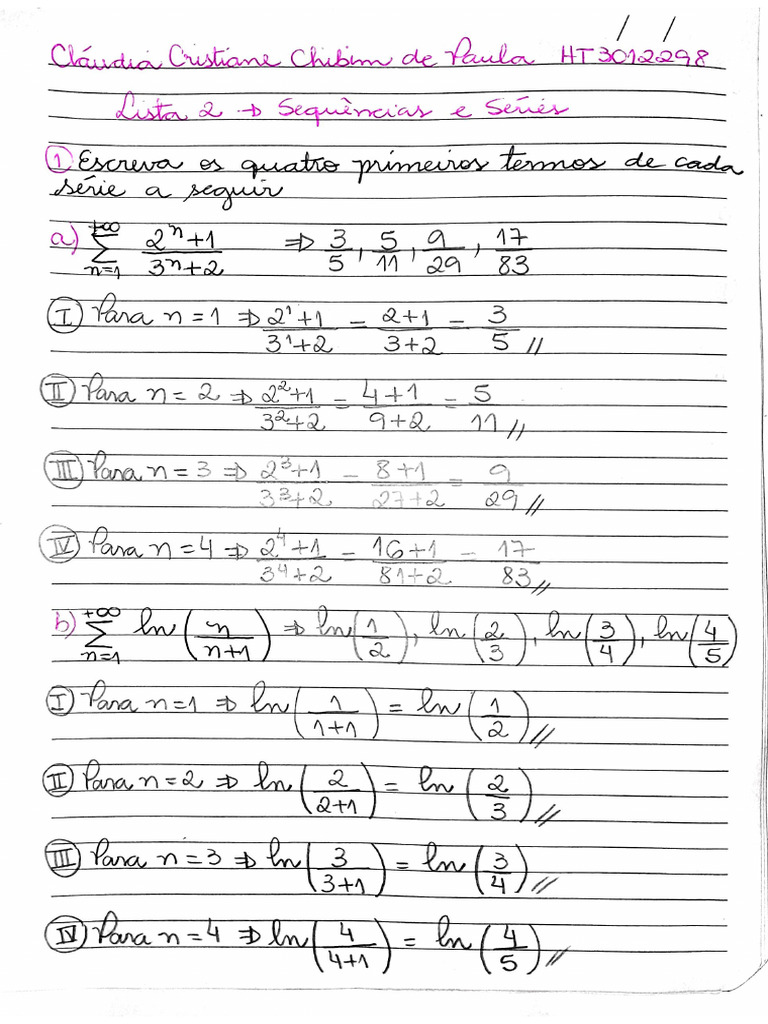 / /
Cláudia Cristiane Chibim de Paula HT3012298
Lista 2 → Sequências e Séries
① Escreva os quatro primeiros termos de cada
série a seguir
a) +∞ Σ n=1 (2^n+1)/(3^n+2) ⇒ 3/5, 5/11, 9/29, 17/83
Ⓘ Para n=1 ⇒ (2^1+1)/(3^1+2) = (2+1)/(3+2) = 3/5 //
Ⅱ Para n=2 ⇒ (2^2+1)/(3^2+2) = (4+1)/(9+2) = 5/11 //
Ⅲ Para n=3 ⇒ (2^3+1)/(3^3+2) = (8+1)/(27+2) = 9/29 //
Ⅳ Para n=4 ⇒ (2^4+1)/(3^4+2) = (16+1)/(81+2) = 17/83 //
b) +∞ Σ n=1 ln(n/(n+1)) ⇒ ln(1/2), ln(2/3), ln(3/4), ln(4/5)
Ⓘ Para n=1 ⇒ ln(1/(1+1)) = ln(1/2) //
Ⅱ Para n=2 ⇒ ln(2/(2+1)) = ln(2/3) //
Ⅲ Para n=3 ⇒ ln(3/(3+1)) = ln(3/4) //
Ⅳ Para n=4 ⇒ ln(4/(4+1)) = ln(4/5) //